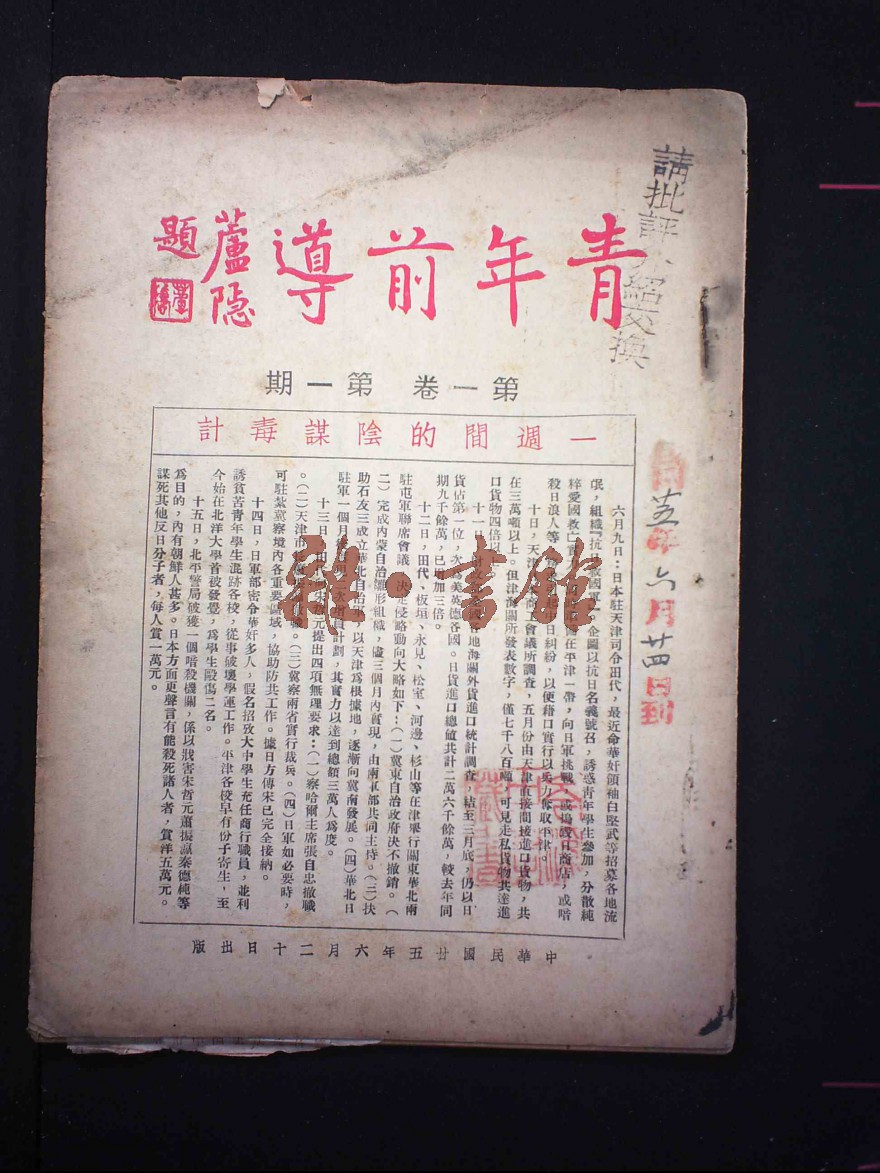 請批評介紹交換
青年前導
蘆隱題
第一卷 第一期
一週間的陰謀毒計
六月九日：日本駐天津司令田代，最近命華奸領袖白堅武等招募各地流
氓，組織『抗日救國軍』企圖以抗日名義號召，誘惑青年學生參加，分散純
粹愛國救亡
在平津一帶，向日軍挑戰，或搗毀日商店，或暗
殺日浪人等
日糾紛，以便藉口實行以兵力奪取平津。
十日，天津
商工會議所調查，五月份由天津直接間接進口貨物，共
在三萬噸以上。但津海關所發表數字，僅七千八百噸，可見走私貨物共達進
口貨物四倍以
十一日
各地海關外貨進口統計調查，結至三月底，仍以日
貨佔第一位，次爲美英德各國。日貨進口總値共計二萬六千餘萬，較去年同
期九千餘萬，已增加三倍。
十二日，田代、板垣、永見、松室、河邊、杉山等在津舉行關東華北兩
駐屯軍聯席會議，決定侵略動向大略如下：(一)冀東自治政府決不撤銷。(
二)完成內蒙自治雛形組織，儘三個月內實現，由兩軍部共同主持。(三)扶
助石友三成立華北自治軍，以天津爲根據地，逐漸向冀南發展。(四)華北日
駐軍一個月後
二次增員計劃，其實力以達到總額三萬人爲度。
十三日，田代向宋哲元提出四項無理要求：(一)察哈爾主席張自忠撤職
。(二)天津市
(三)冀察兩省實行裁兵。(四)日軍如必要時，
可駐紮冀察境內各重要區域，協助防共工作。據日方傳宋已完全接納。
十四日，日軍部密令華奸多人，假名招致大中學生充任商行職員，並利
誘貧苦青年學生混跡各校，從事破壞學運工作。平津各校早有份子寄生，至
今始在北洋大學首被發覺，爲學生毆傷二名。
十五日，北平警局破獲一個暗殺機關，係以戕害宋哲元蕭振瀛秦德純等
爲目的，內有朝鮮人甚多。日本方面更聲言有能殺死諸人者，賞洋五萬元。
謀死其他反日分子者，每人賞一萬元。
中華民國廿五年六月二十日出版
廿五年六月廿四日到
雅·書館